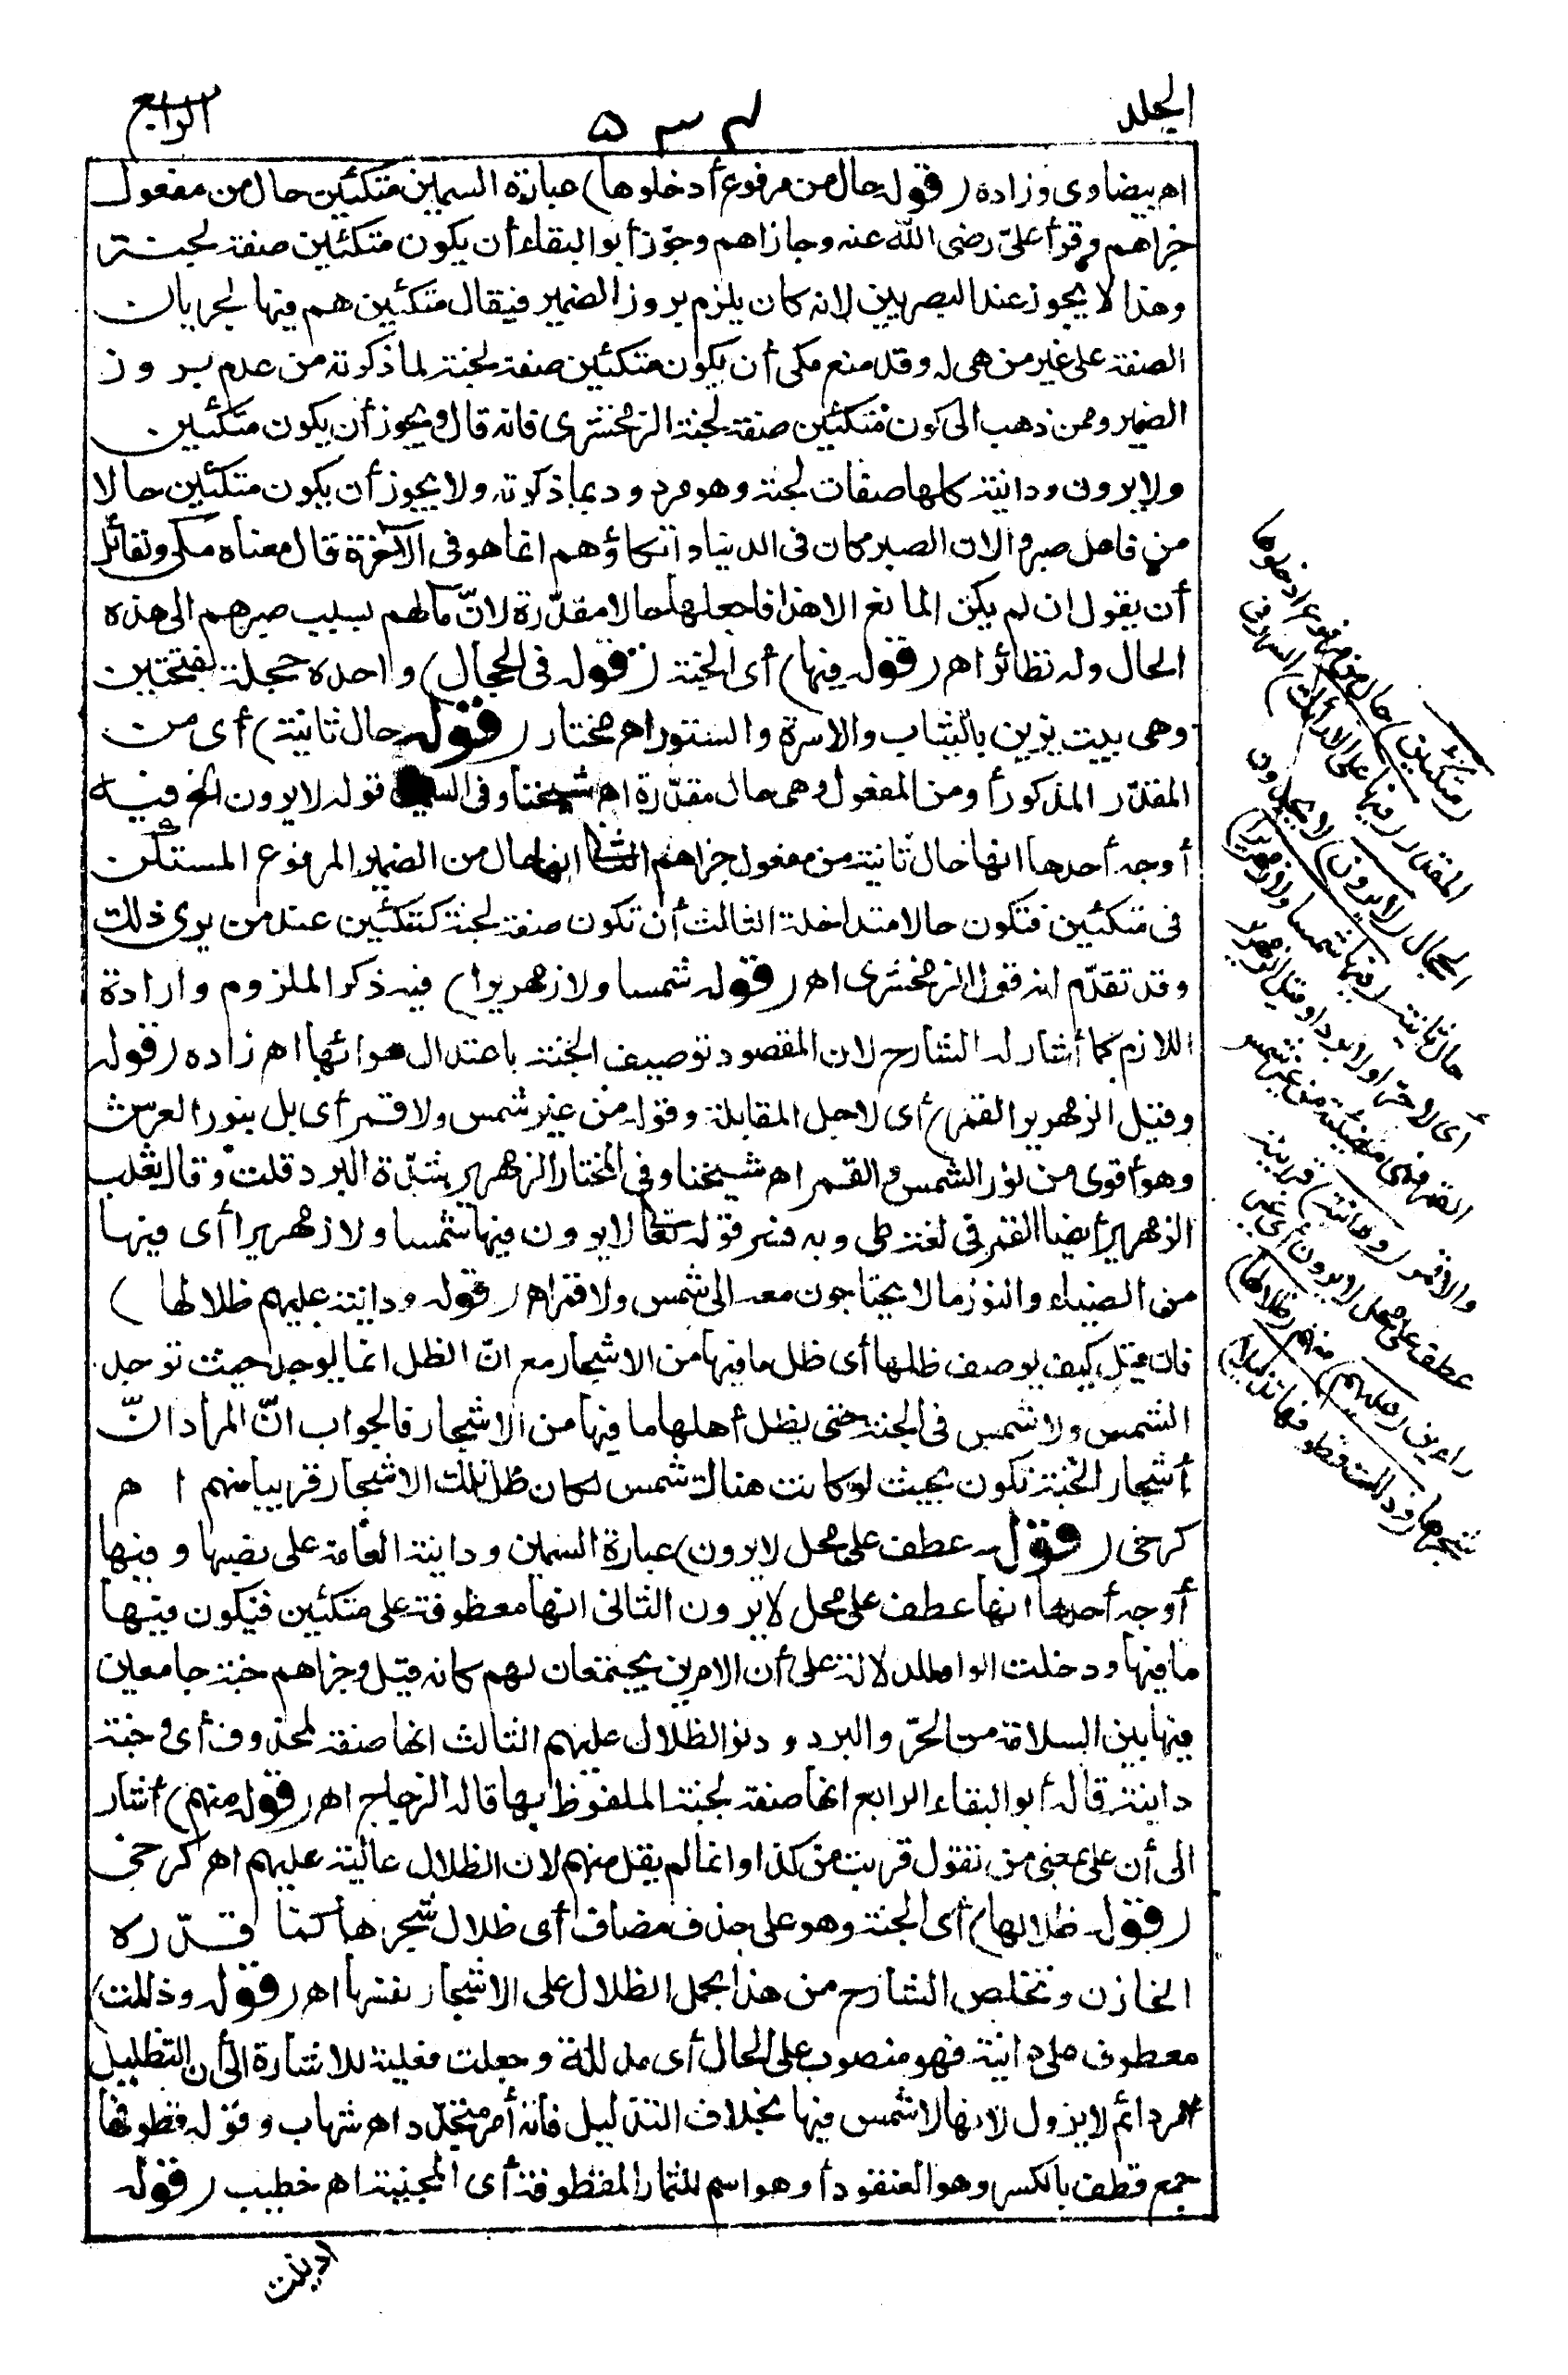 الجلد
٥٣٤
الرابع
اهـ بيضاوى وزاده (قوله حال من مرفوع أدخلوها) عبارة السمين متكئين حال من مفعول
جزاهم وقرأ علىّ رضى الله عنه وجازاهم وجوّز أبوالبقاء أن يكون متكئين صفة لجنة
وهذا لا يجوز عند البصريين لانه كان يلزم بروز الضمير فيقال متكئين هم فيها لجريان
الصفة على غير من هى له وقد منع مكى أن يكون متكئين صفة لجنة لما ذكرته من عدم بروز
الضمير وممن ذهب الى كون متكئين صفة لجنة الزمخشرى فانه قال ويجوز أن يكون متكئين
ولا يرون ودانية كلها صفات لجنة وهو مردود بما ذكرته ولا يجوز أن يكون متكئين حالا
من فاعل صبروا لان الصبر كان فى الدنيا واتكاؤهم انما هو فى الآخرة قال معناه مكى ولقائل
أن يقول ان لم يكن المانع الا هذا فاجعلها حالا مقدّرة لانّ مآلهم بسبب صبرهم الى هذه
الحال وله نظائر اهـ (قوله فيها) أى الجنة (قوله فى الحجال) واحده حجلة بفتحتين
وهى بيت يزين بالثياب والاسرة والستور اهـ مختار (قوله حال ثانية) أى من
المقدّر المذكور أو من المفعول وهى حال مقدّرة اهـ شيخنا وفى السمين قوله لا يرون الخ فيه
أوجه أحدها انها حال ثانية من مفعول جزاهم الثانى انها حال من الضمير المرفوع المستكن
فى متكئين فتكون حالا متداخلة الثالث أن تكون صفة لجنة كمتكئين عند من يرى ذلك
وقد تقدّم انه قول الزمخشرى اهـ (قوله شمسا ولا زمهريرا) فيه ذكر الملزوم وارادة
اللازم كما أشار له الشارح لان المقصود توصيف الجنة باعتدال هوائها اهـ زاده (قوله
وقيل الزمهرير القمر) أى لاجل المقابلة وقوله من غير شمس ولا قمر أى بل بنور العرش
وهو أقوى من نور الشمس والقمر اهـ شيخنا وفى المختار الزمهرير شدّة البرد قلت وقال ثعلب
الزمهرير أيضا القمر فى لغة طى وبه فسر قوله تعالى لا يرون فيها شمسا ولا زمهريرا أى فيها
من الضياء والنور ما لا يحتاجون معه الى شمس ولا قمر اهـ (قوله ودانية عليهم ظلالها)
فان قيل كيف يوصف ظلها أى ظل ما فيها من الاشجار مع انّ الظل انما يوجد حيث توجد
الشمس ولا شمس فى الجنة حتى يظل أهلها ما فيها من الاشجار فالجواب انّ المراد انّ
أشجار الجنة تكون بحيث لو كانت هناك شمس لكان ظل تلك الاشجار قريبا منهم ا هـ
كرخى (قوله عطف على محل لا يرون) عبارة السمين ودانية العامة على نصبها وفيها
أوجه أحدها انها عطف على محل لا يرون الثانى انها معطوفة على متكئين فيكون فيها
ما فيها ودخلت الواو للدلالة على أن الامرين يجتمعان لهم كانه قيل وجزاهم جنة جامعين
فيها بين السلامة من الحرّ والبرد ودنو الظلال عليهم الثالث انها صفة لمحذوف أى وجنة
دانية قاله أبو البقاء الرابع انها صفة لجنة الملفوظ بها قاله الزجاج اهـ (قوله منهم) أشار
الى أن على بمعنى من تقول قريب من كذا وانما لم يقل منهم لان الظلال عالية عليهم اهـ كرخى
(قوله ظلالها) أى الجنة وهو على حذف مضاف أى ظلال شجرها كما قدّره
الخازن وتخلص الشارح من هذا بحمل الظلال على الاشجار نفسها اهـ (قوله وذللت)
معطوف على دانية فهو منصوب على الحال أى مذللة وجعلت فعلية للاشارة الى أن التظليل
أمر دائم لا يزول لانها لا شمس فيها بخلاف التذليل فانه أمر متجدّد اهـ شهاب وقوله قطوفها
جمع قطف بالكسر وهو العنقود أو هو اسم للثمار المقطوفة أى المجنية اهـ خطيب (قوله
ادنيت
(متكئين) حال من مرفوع ادخلوها
المقدر (فيها على الأرائك) السرر فى
الحجال (لا يرون) لا يجدون
حال ثانية (فيها شمسا ولا زمهريرا)
أى لا حرّا ولا بردا وقيل الزمهرير
القمر فهى مضيئة من غير شمس
ولا قمر (ودانية) قريبة
عطف على محل لا يرون أى غير
راءين (عليهم) منهم (ظلالها)
شجرها (وذللت قطوفها تذليلا)